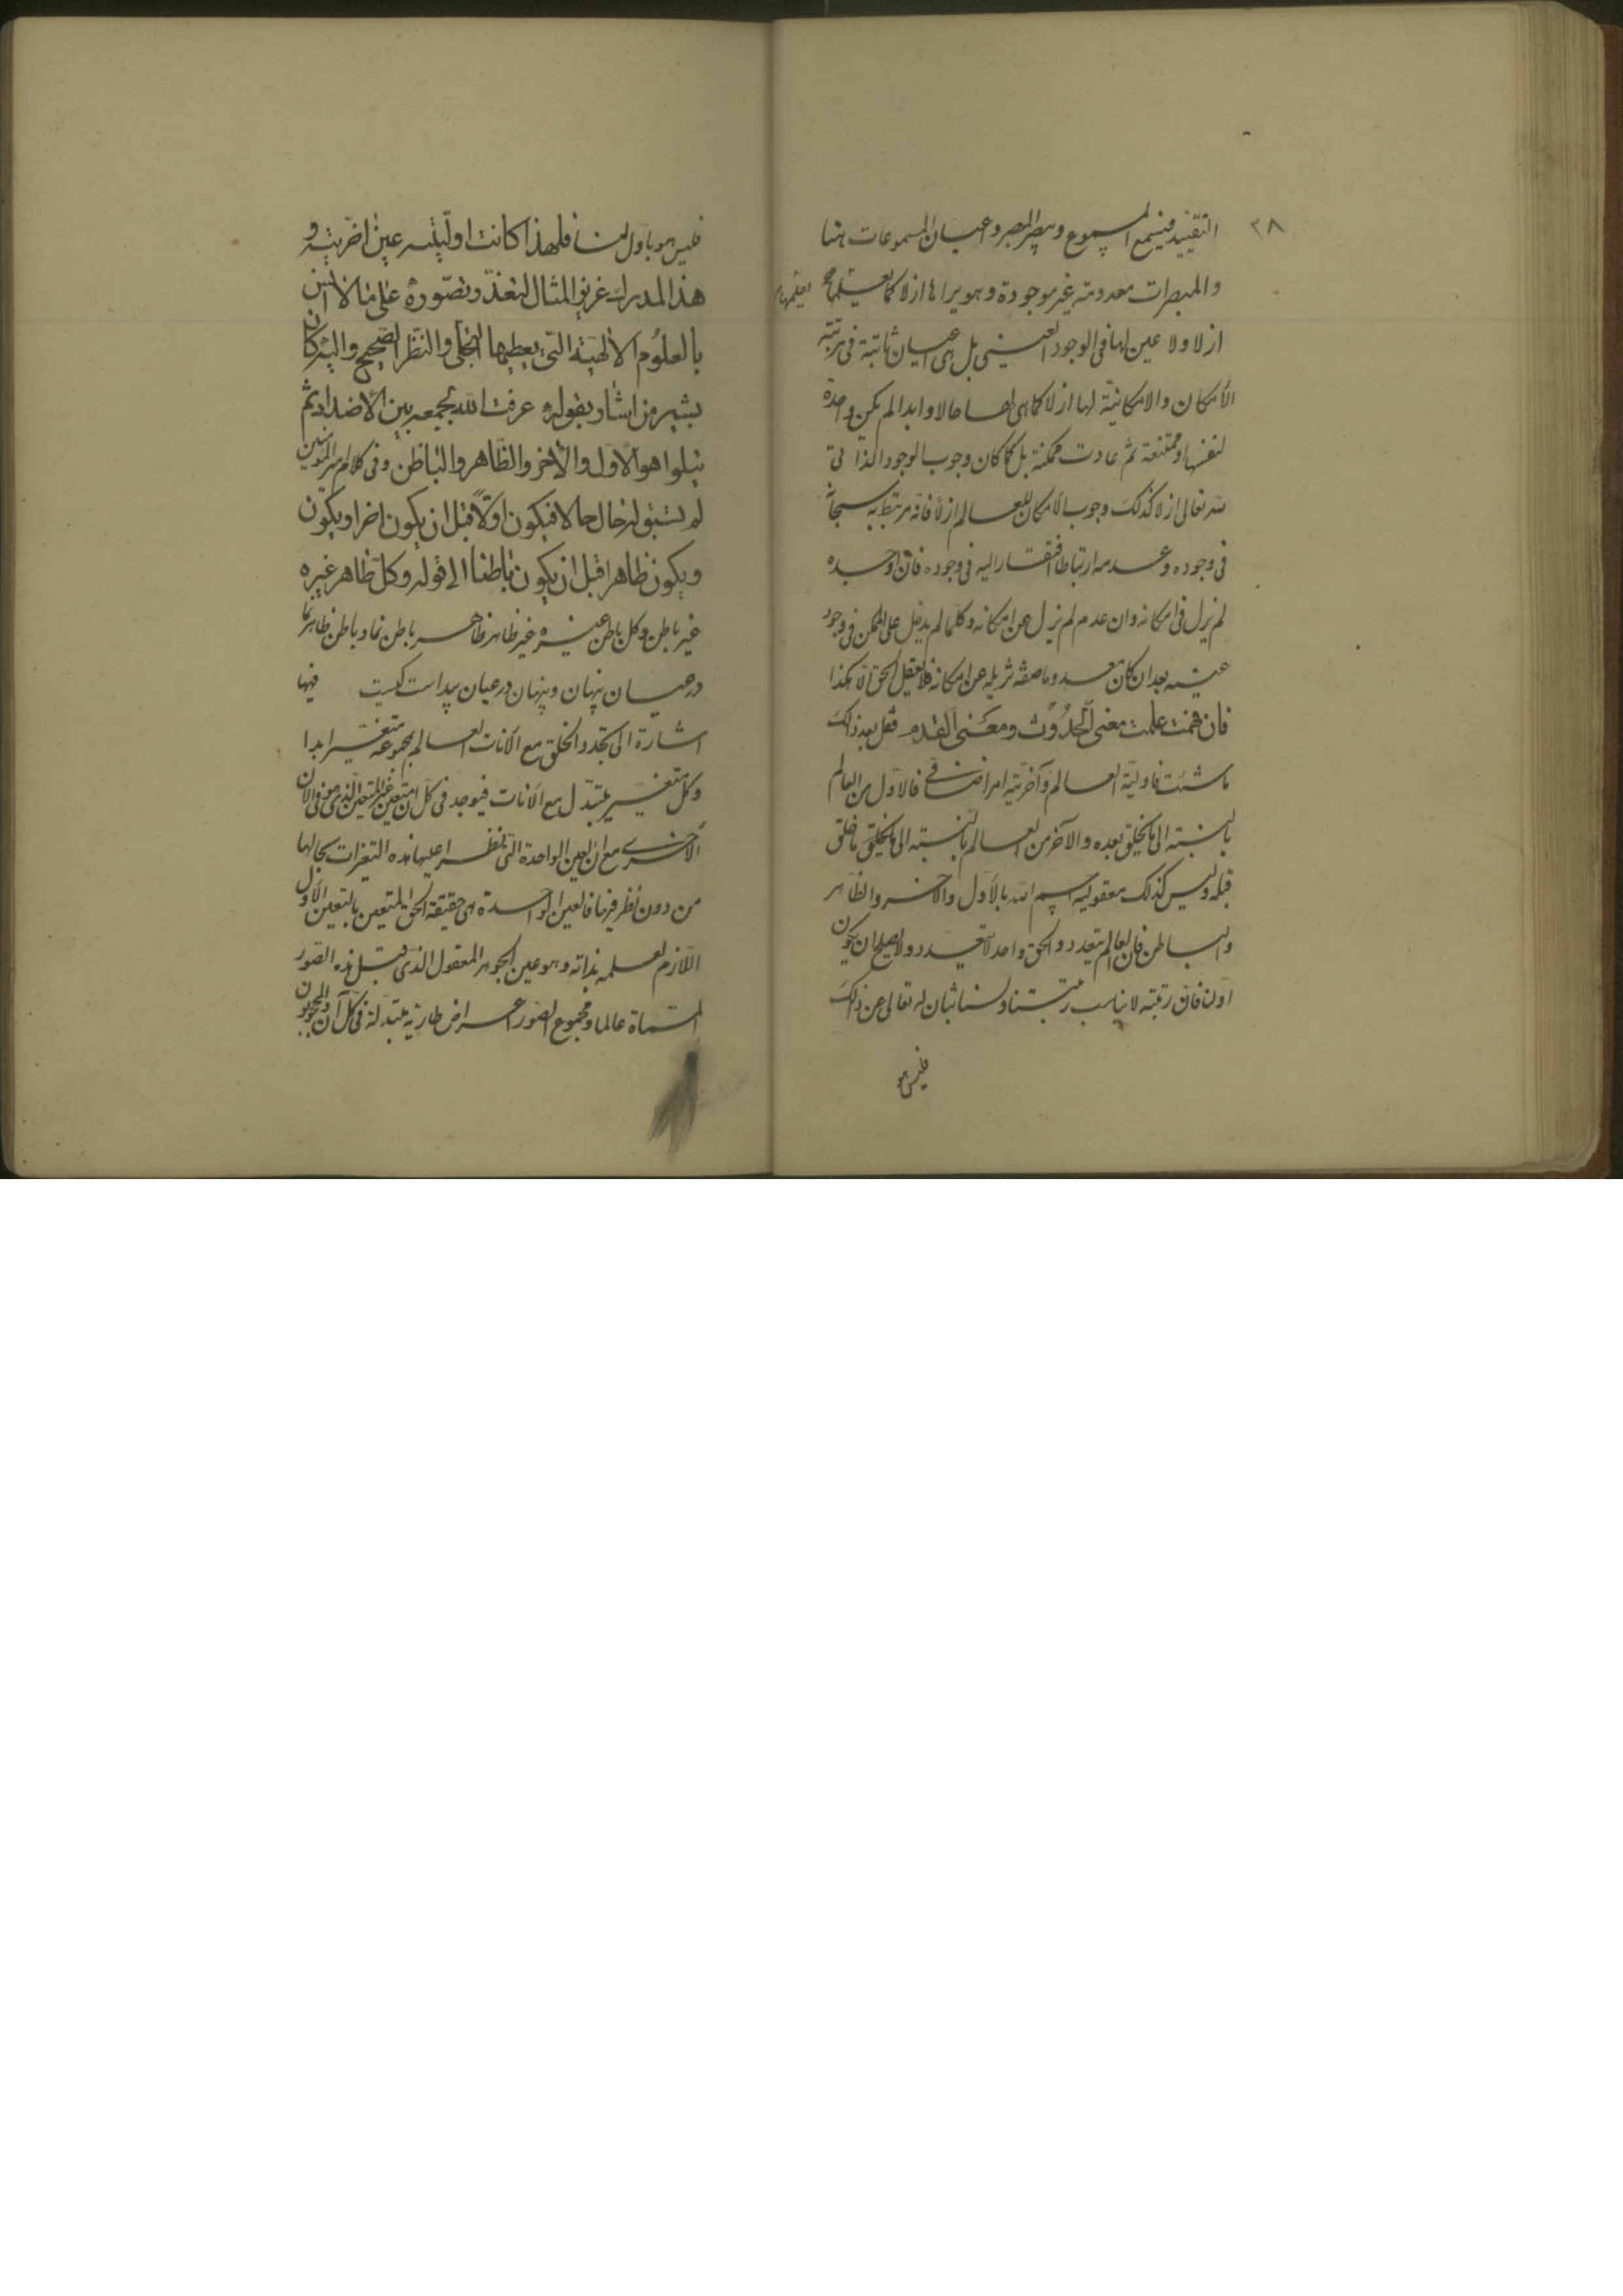 ٢٨
التقييد فيسمع المسموع ويبصر المبصر واعيان المسموعات هنا
والمبصرات معدومة غير موجودة وهو يراها ازلا كما يعلمها
ازلا ولا عين لها في الوجود العيني بل هي اعيان ثابتة في رتبة
الأمكان والامكانية لها ازلا كما هي لها حالا وابدا لم يكن واجدة
لنفسها وممتنعة ثم عادت ممكنة بل كما كان وجوب الوجود الذاتي
لله تعالى ازلا كذلك وجوب الامكان للعالم ازلا فانه مرتبط به سبحانه
في وجوده وعدمه ارتباط افتقار اليه في وجوده فان اوجده
لم يزل في امكانه وان عدم لم يزل عن امكانه وكما لم يدخل على الممكن في وجود
عينه بعد ان كان معدوما صفة تزيله عن امكانه فلا تعقل الحق الا هكذا
فان فهمت علمت معنى الحدوث ومعنى القدم فقل بعد ذلك
ما شئت فاولية العالم وآخريته امر اضافي فالاول من العالم
بالنسبة الى ما يخلق بعده والآخر من العالم بالنسبة الى ما خلق
قبله وليس كذلك معقولية اسم الله بالاول والاخر والظاهر
والباطن فان العالم يتعدد والحق واحد لا يتعدد ولا يصلح ان يكون
اولا لنا فان رتبته لا تناسب رتبتنا ولسنا بثان له تعالى عن ذلك
فليس هو
فليس هو باول لنا فلهذا كانت اوليته عين اخريته و
هذا المدرك عزيز المثال لتعذر تصوره على من لا انس
بالعلوم الألهية التي يعطيها التجلي والنظر الصحيح واليه كان
يشير من اشار بقوله عرفت الله بجمعه بين الأضداد ثم
يتلوا هو الأول والأخر والظاهر والباطن وفي كلام امير المؤمنين
لم يسبق له حال حالا فيكون اولا قبل ان يكون اخرا ويكون
ويكون ظاهرا قبل ان يكون باطنا الى قوله وكل ظاهر غيره
غير باطن وكل باطن غيره غير ظاهر ظاهر باطن نما و باطن ظاهر نما
در عيان پنهان و پنهان در عيان پيداست كيست فيها
اشارة الى تجدد الخلق مع الآنات العالم بمجموعه متغير ابدا
وكل متغير يتبدل مع الآنات فيوجد في كل آن متعين غير المتعين الذي هو في الان
الاخر مع ان العين الواحدة التي تطرأ عليها هذه التغيرات بحالها
من دون نظر فيها فالعين الواحدة هي حقيقة الحق المتعين بالتعين الاول
اللازم لعلمه بذاته وهو عين الجوهر المعقول الذي قبل هذه الصور
المسماة عالما ومجموع الصور اعراض طارية متبدلة في كل آن والمحجوبون